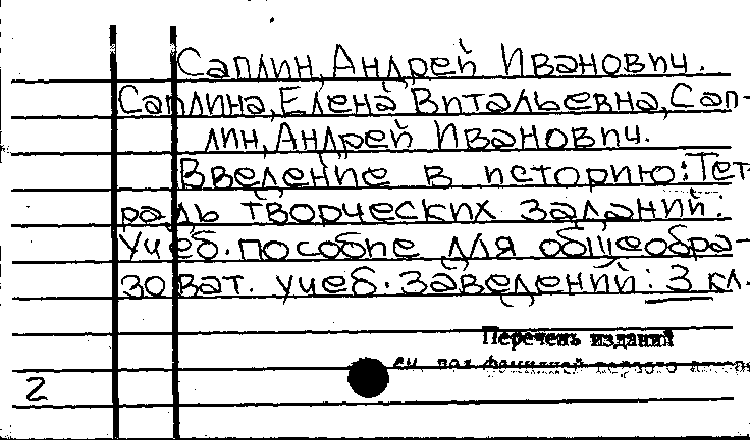 Саплин, Андрей Иванович.
Саплина, Елена Витальевна, Сап-
лин, Андрей Иванович.
Введение в историю: Тет-
радь творческих заданий:
Учеб. пособие для общеобра-
зоват. учеб. заведений: 3 кл.
Перечень изданий
см. под фамилией первого автора
2